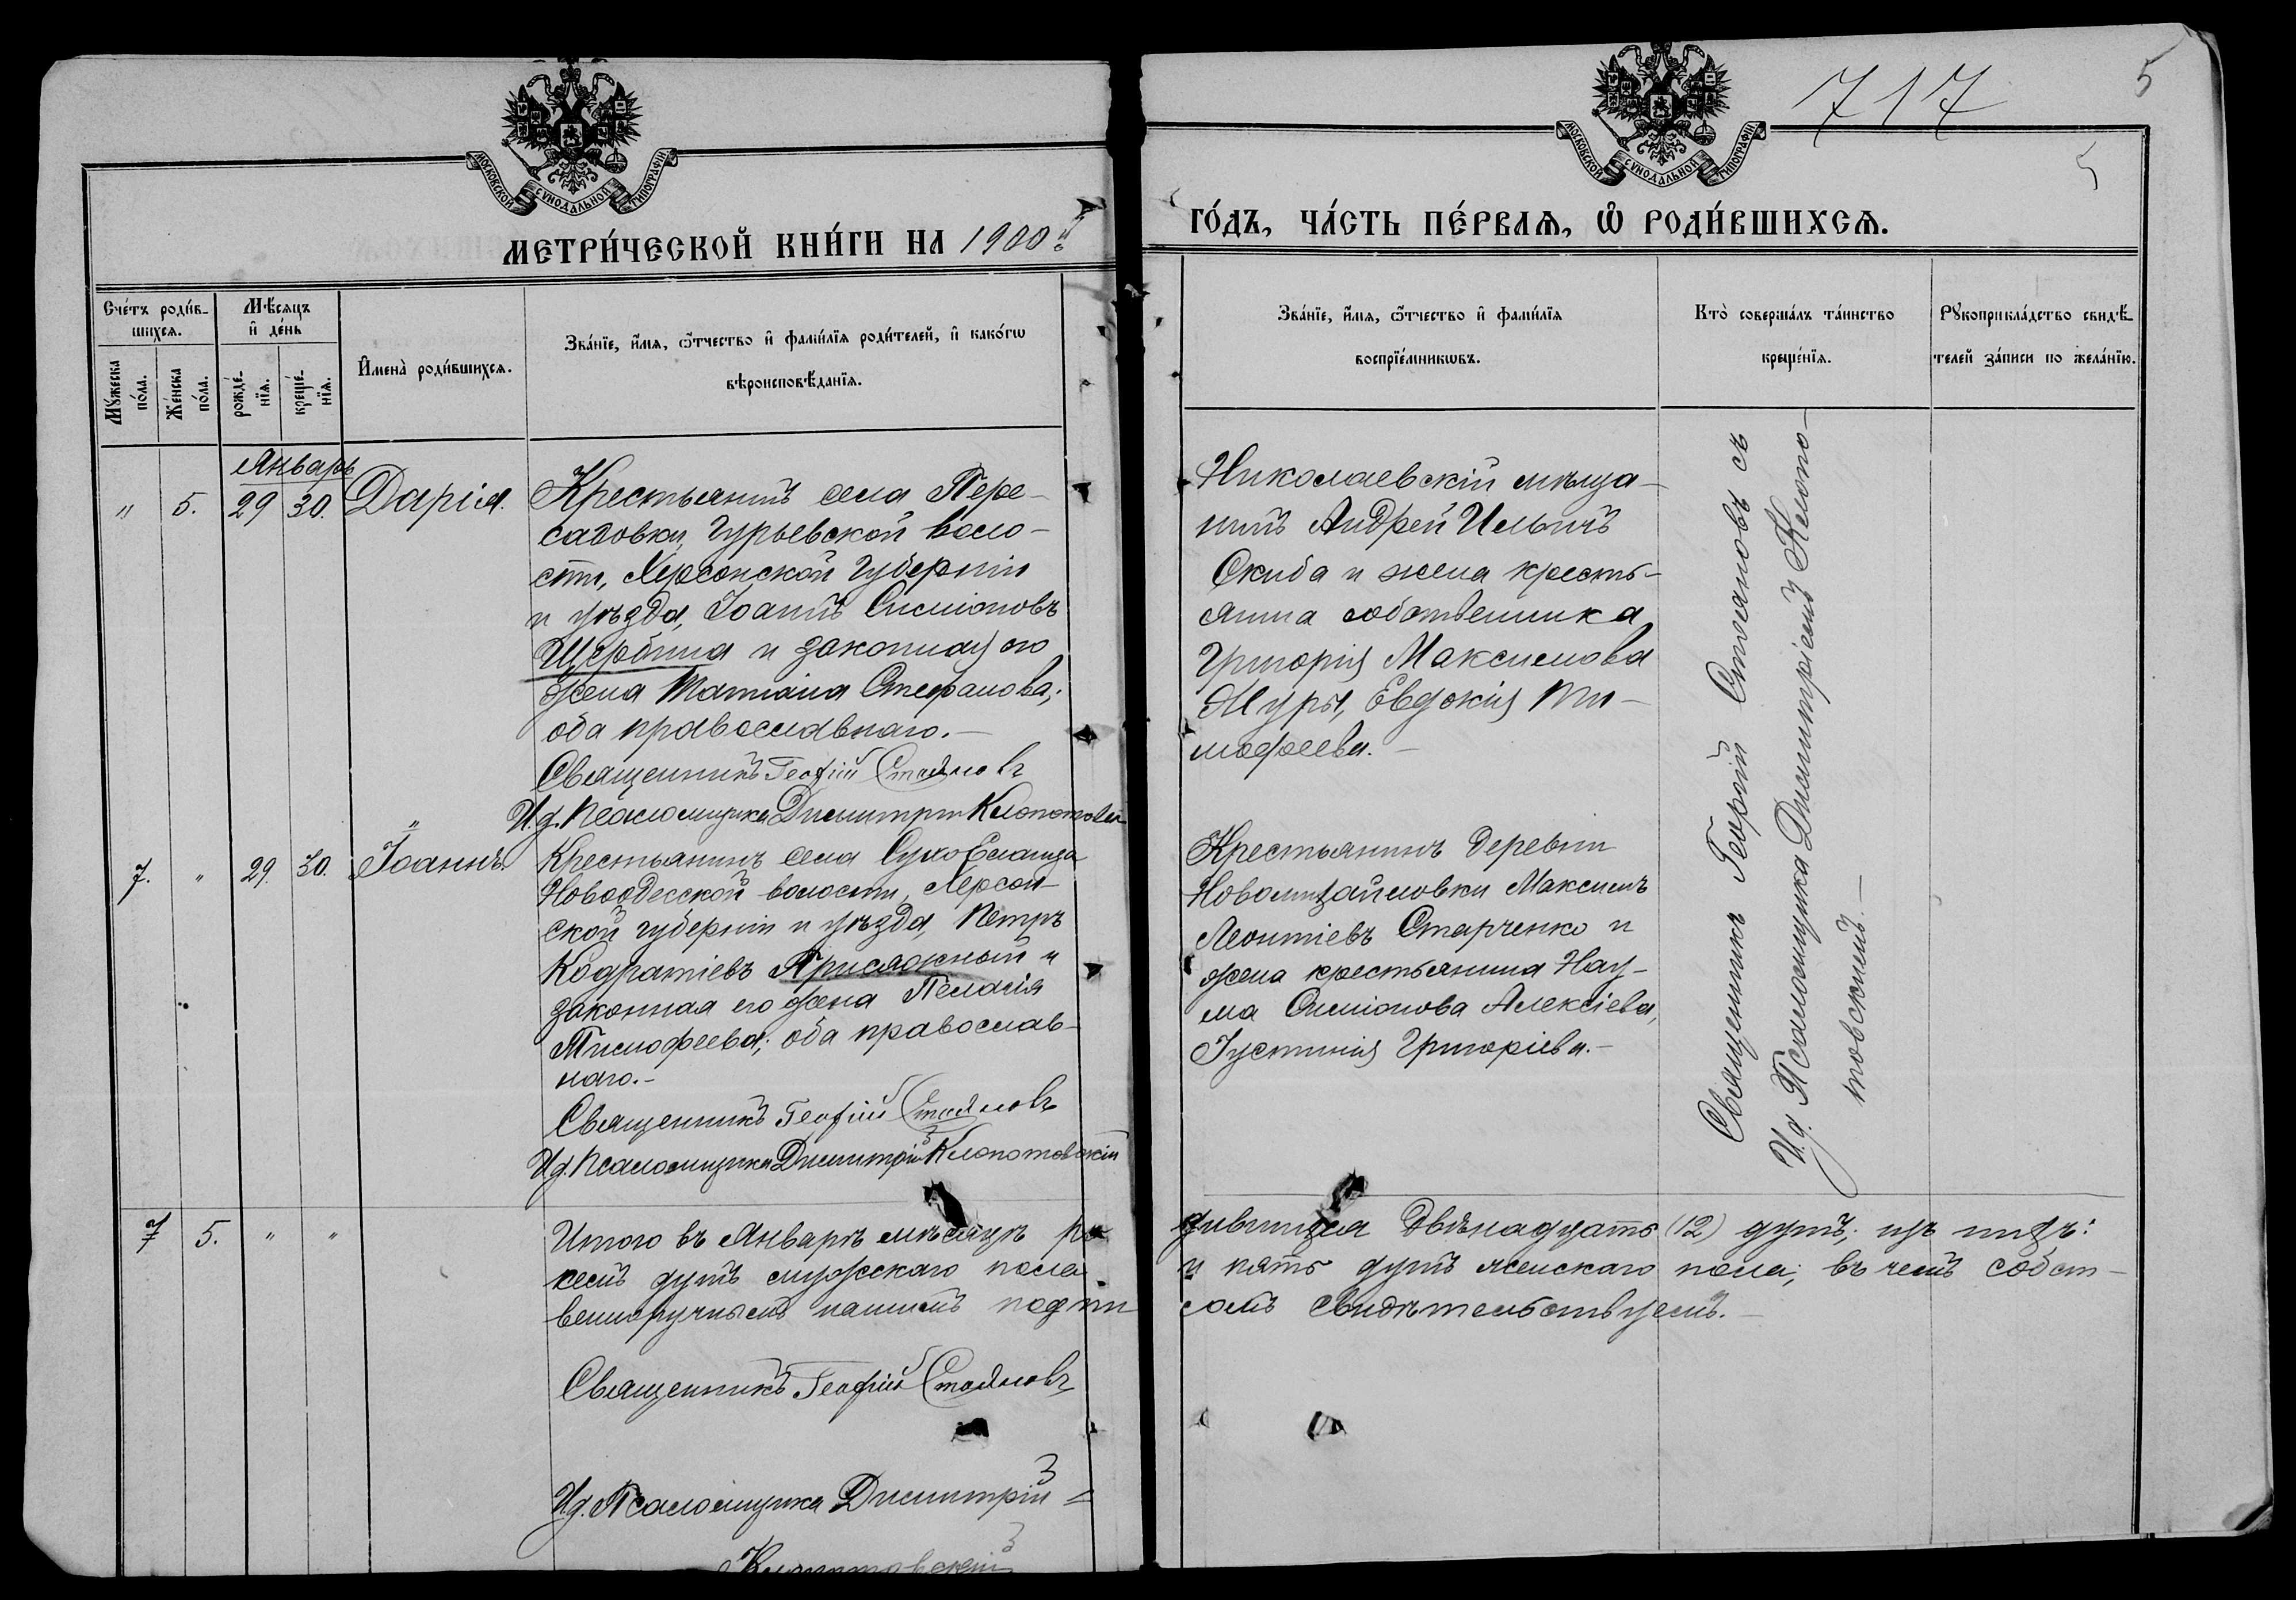 717
5
5
МОСКОВСКОЙ СѴНОДАЛЬНОЙ ТИПОГРАФІИ.
МОСКОВСКОЙ СѴНОДАЛЬНОЙ ТИПОГРАФІИ.
МЕТРИ́ЧЕСКОЙ КНИ́ГИ НА 1900й
ГО́ДЪ, ЧА́СТЬ ПЕ́РВАѦ, Ѽ РОДИ́ВШИХСѦ.
Сче́тъ роди́в-
шихся.
Мѣ́сяцъ
и҆ де́нь
Мꙋ́жеска
по́ла.
Же́нска
по́ла.
рожде́-
нїя.
креще́-
нїя.
И҆мена̀ роди́вшихся.
Зва́нїе, и҆́мя, ѻ҆́тчество и҆ фами́лїя роди́телей, и҆ како́гѡ
вѣроисповѣ́данїя.
Зва́нїе, и҆́мя, ѻ҆́тчество и҆ фами́лїя
воспрїе́мникѡвъ.
Кто̀ соверша́лъ та́инство
креще́нїя.
Рꙋкоприкла́дство свидѣ́-
телей за́писи по жела́нїю.
Январь
" 5. 29 30. Дарія.
Крестьянинъ села Пере-
садовки, Гурьевской воло-
сти, Херсонской губерніи
и уѣзда, Іоаннъ Симіоновъ
Щербина и законная его
жена Татіана Стефанова,
оба православнаго.-
Священникъ Георгій Стояновъ
И.д. Псаломщика Димитрій Клопотовскій
Николаевскій мѣща-
нинъ Андрей Ильичъ
Скиба и жена кресть-
янина собственника
Григорія Максимова
Муры, Евдокія Ти-
мофеева.-
Священникъ Георгій Стояновъ съ
И.д. Псаломщика Димитріемъ Клопо-
товскимъ.-
"
7. " 29. 30. Іоаннъ.
Крестьянинъ села СухоЕланца
Новоодесской волости, Херсон-
ской губерніи и уѣзда, Петръ
Кодратіевъ Присяжный и
законная его жена Пелагія
Тимофеева; оба православ-
наго.-
Священникъ Георгій Стояновъ
И.д. Псаломщика Димитрій Клопотовскій
Крестьянинъ деревни
Новомихайловки Максимъ
Леонтіевъ Старченко и
жена крестьянина Нау-
ма Симіонова Алексіева,
Іустинія Григоріева.-
7 5. " "
Итого въ Январѣ мѣсяцѣ ро дившихся двѣнадцать (12) душъ, изъ нихъ:
семь душъ мужескаго пола и пять душъ женскаго пола; въ чемъ собст-
венноручнымъ нашимъ подпи сомъ свидѣтельствуемъ.-
Священникъ Георгій Стояновъ
И.д. Псаломщика Димитрій =
Клопотовскій